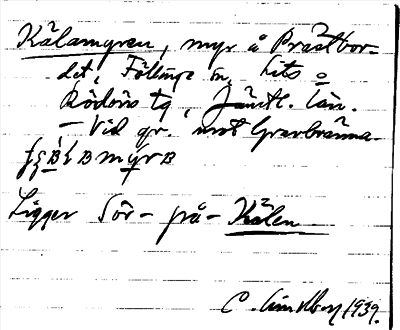 Kälamyren, myr å Prästbor-
det, Föllinge sn, Lits o
Rödöns tg, Jämtl. län.
– Vid gr. mot Gravbränna-
myr
Ligger Sör-på-Kälen
C. Lindberg 1939.